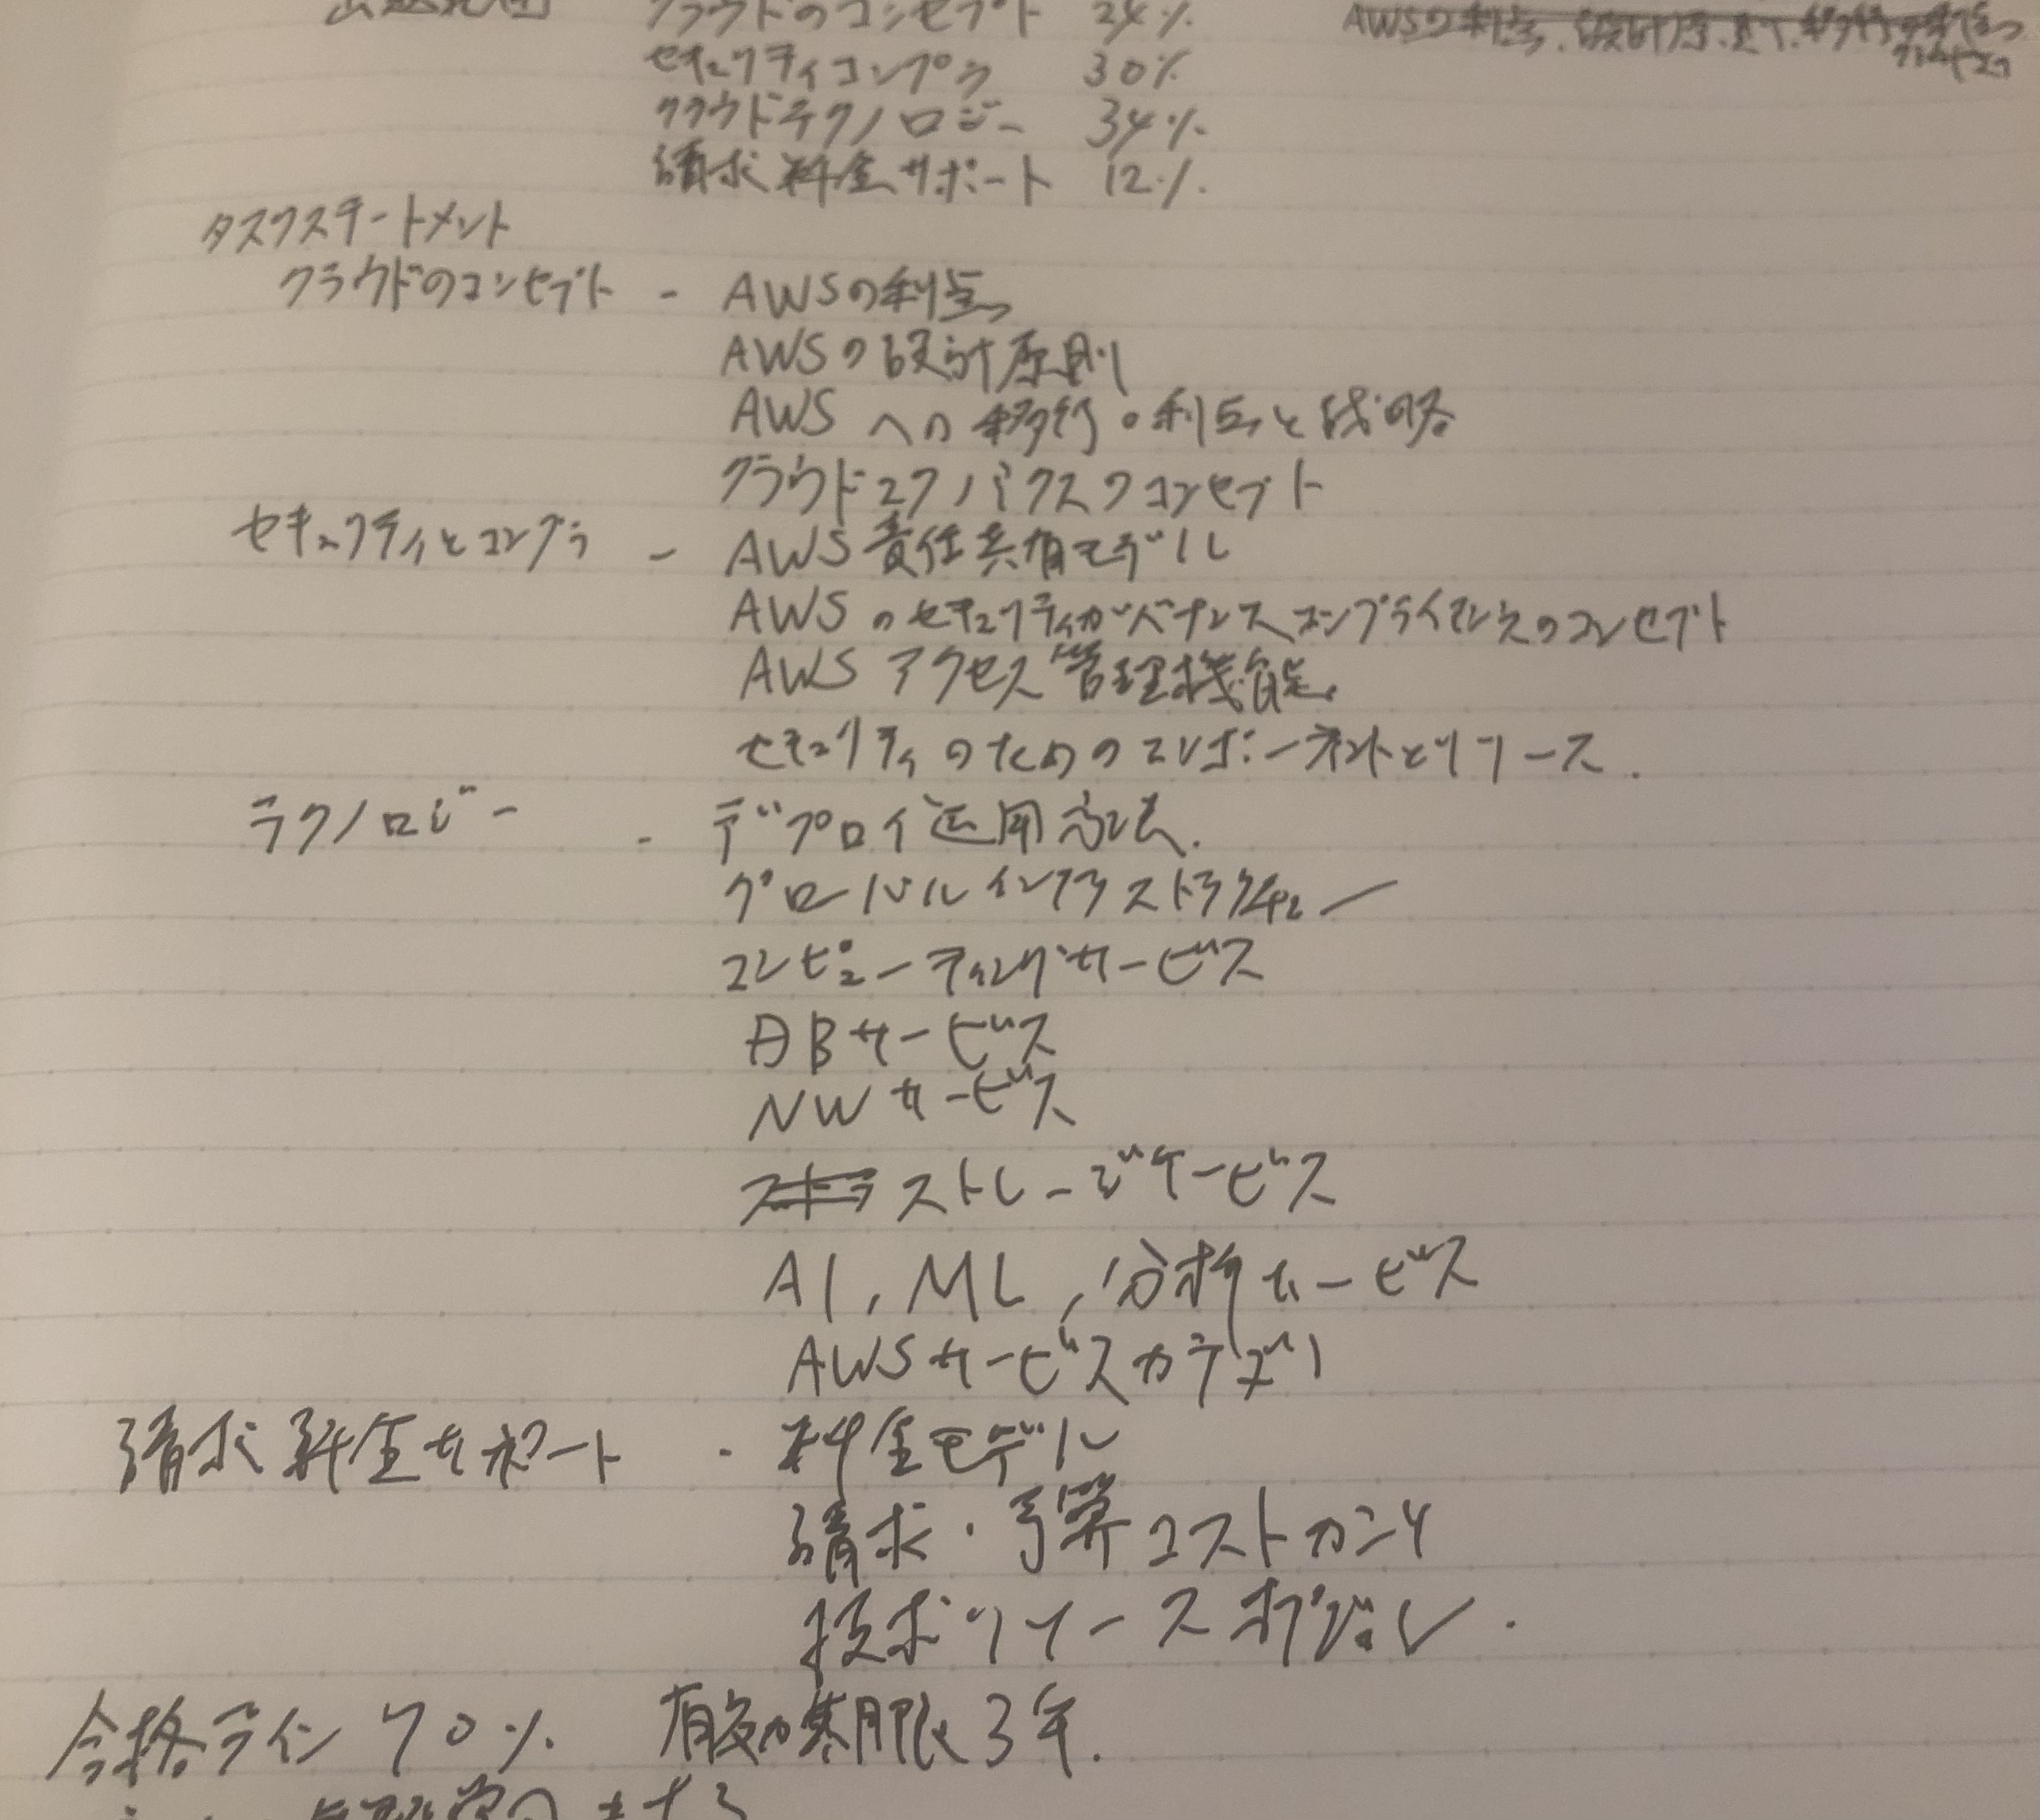 出題範囲 クラウドのコンセプト 24%
セキュリティコンプラ 30%
クラウドテクノロジー 34%
請求料金サポート 12%
タスクステートメント
クラウドのコンセプト - AWSの利点
AWSの設計原則
AWSへの移行の利点と戦略
クラウドエクノミクスのコンセプト
セキュリティとコンプラ - AWS責任共有モデル
AWSのセキュリティガバナンスコンプライアンスのコンセプト
AWSアクセス管理機能
セキュリティのためのコンポーネントとリソース.
テクノロジー - デプロイ運用方法.
グローバルインフラストラクチャー
コンピューティングサービス
DBサービス
NWサービス
ストレージサービス
AI, ML, 分析サービス
AWSサービスカテゴリ
請求料金サポート - 料金モデル
請求・予算コストカンリ
技術リソースオプション.
合格ライン 70% 有効期限3年.